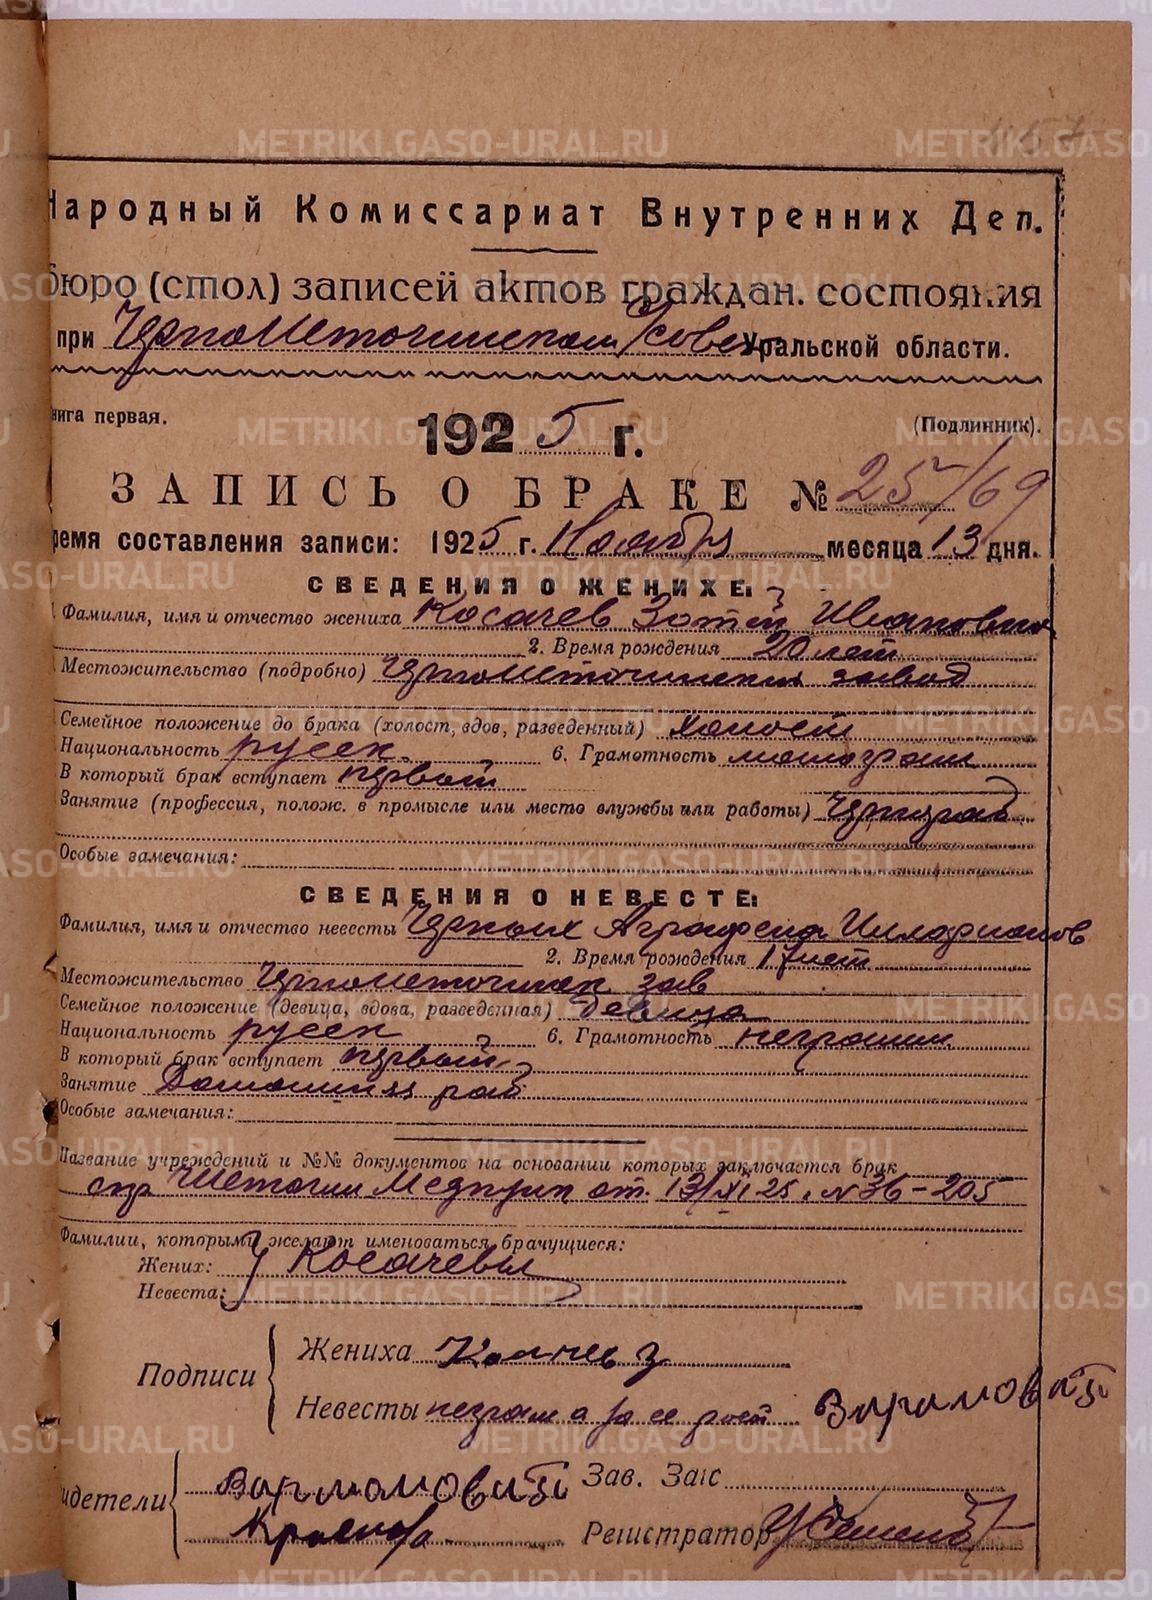 METRIKI.GASO-URAL.RU
Народный Комиссариат Внутренних Дел.
бюро (стол) записей актов граждан. состояния
при Черноисточинском Уральской области.
книга первая.
1925 г.
(Подлинник).
ЗАПИСЬ О БРАКЕ № 25/69
Время составления записи: 1925 г. Ноября месяца 13 дня.
СВЕДЕНИЯ О ЖЕНИХЕ:
1. Фамилия, имя и отчество жениха Косачев Зотей Иванович
2. Время рождения 20 лет
Местожительство (подробно) Черноисточинский завод
Семейное положение до брака (холост, вдов, разведенный) холост
Национальность русск. 6. Грамотность малограм
В который брак вступает первый
Занятие (профессия, полож. в промысле или место службы или работы) Чернораб
Особые замечания:
СВЕДЕНИЯ О НЕВЕСТЕ:
Фамилия, имя и отчество невесты Черных Аграфена
2. Время рождения 17 лет
Местожительство Черноисточин зав
Семейное положение (девица, вдова, разведенная) девица
Национальность русск 6. Грамотность неграмм
В который брак вступает первый
Занятие Домашняя раб
Особые замечания:
Название учреждений и №№ документов на основании которых заключается брак
спр от 13/XI 25. № 36-205
Фамилии, которыми желают именоваться брачущиеся:
Жених: Косачевы
Невеста:
Подписи
Жениха Косачев З
Невесты неграм а за ее рост
Свидетели
Зав. Загс
Регистратор